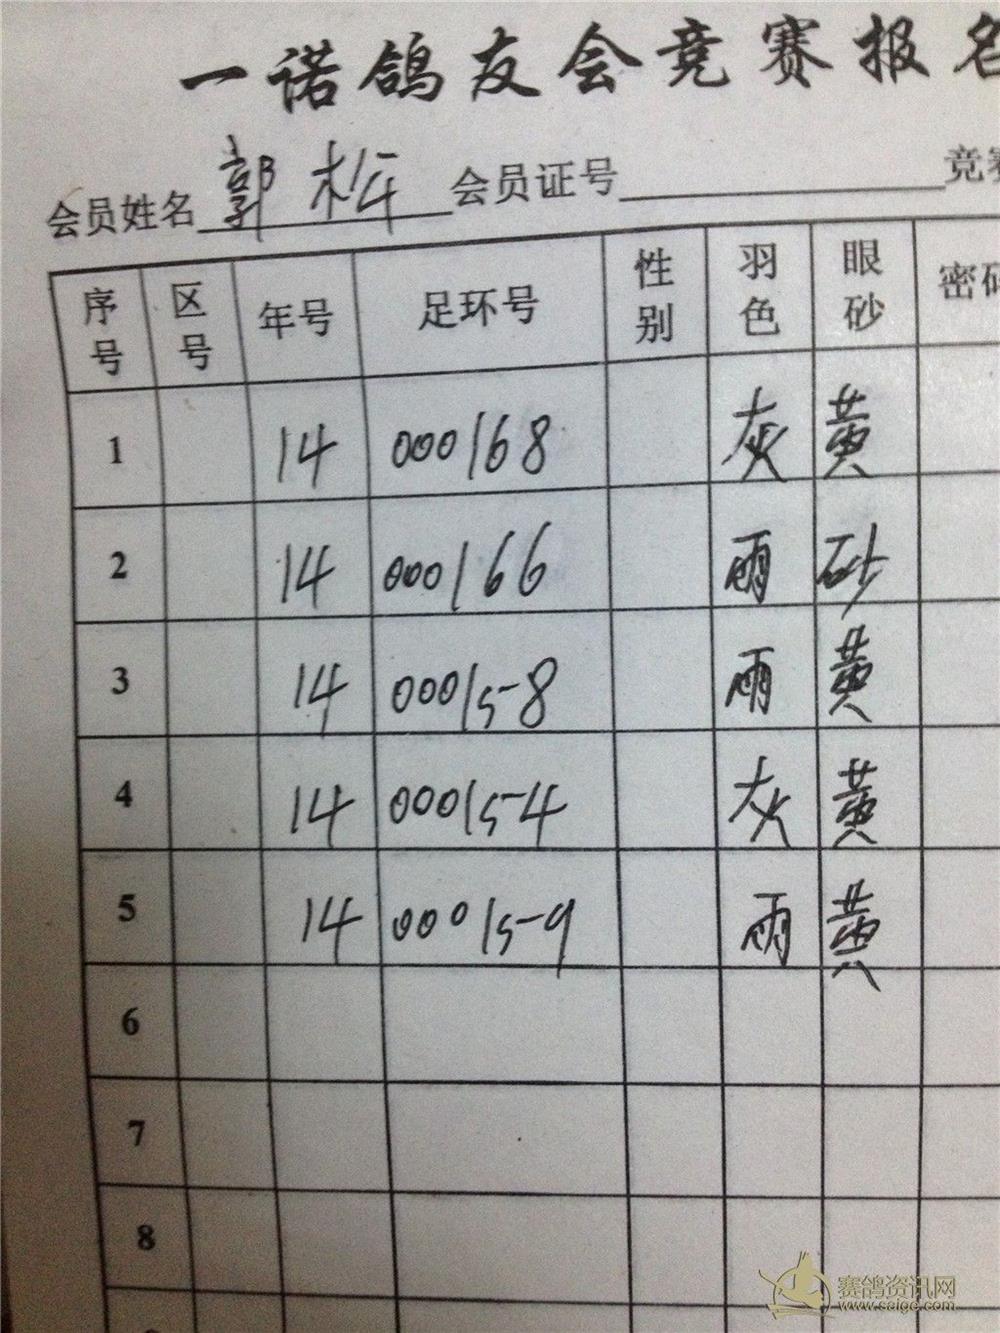 一诺鸽友会竞赛报名
会员姓名 郭 会员证号 竞赛
序号 区号 年号 足环号 性别 羽色 眼砂 密码
1 14 000168 灰 黄
2 14 000166 雨 砂
3 14 000158 雨 黄
4 14 000154 灰 黄
5 14 000159 雨 黄
6
7
8
赛鸽资讯网
www.saige.com